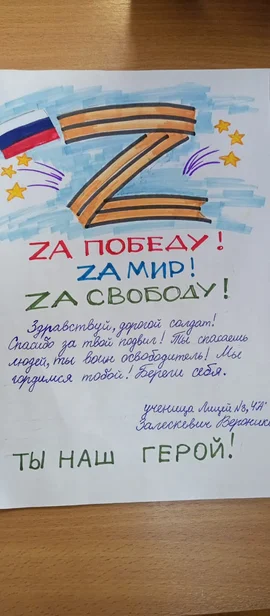 Z
ZА ПОБЕДУ!
ZА МИР!
ZА СВОБОДУ!
Здравствуй, дорогой солдат!
Спасибо за твой подвиг! Ты спасаешь
людей, ты воин освободитель! Мы
гордимся тобой! Береги себя.
ученица Лицей №8, 4"А"
Залескевич Вероника
ТЫ НАШ ГЕРОЙ!